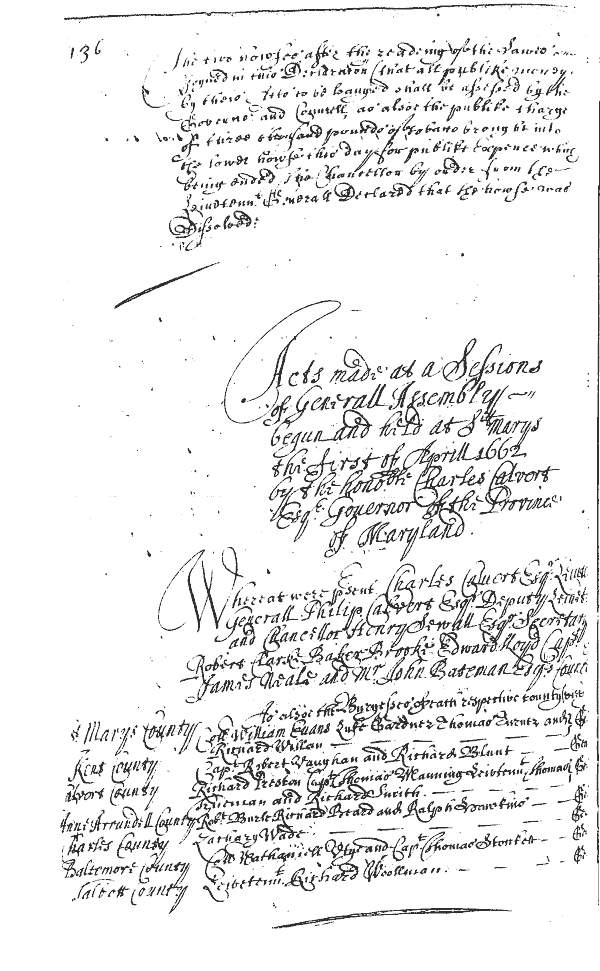 136
The two howses after the reading of the Lawes
signed in this that all publike moneys
by these to be Leavyed shall be assessed by the
Governor and Councell, as alsoe the publike Charge
of three thousand pounds of tobaco brought into
the lower howse this day for publike expences which
being ended The Chancellor by order from the
Leivetennt Generall Declared that the howse was
Dissolved:
Acts made at a Sessions
of Generall Assembly
begun and held at St Marys
the first of Aprill 1662
by the honoble Charles Calvert
Esqr Governor of the Province
of Maryland.
Whereat were psent Charles Calvert Esqr
Generall Philip Calvert Esqr Deputy
and Chancellor Henry Sewall Esqr Secretar
Robert Clarke Baker Brooke Edward Lloyd Capt
James Neale and Mr John Bateman Esqrs
As alsoe the Burgesses of each respective county
St Marys County Coll William Evans Luke Gardner Thomas Turner and
Richard Willan
Kent County Capt Robert Vaughan and Richard Blunt
alvert County Richard Preston Capt Thomas Manning Leivtennt Thomas
Trueman and Richard Smith
Anne Arrundell County Robt Burle Richard Beard and Ralph
Charles County Zachary Wade
Baltemore County Coll Nathaniell Utye and Capt Thomas Stockett
Talbott County Leivetennt Richard Woollman